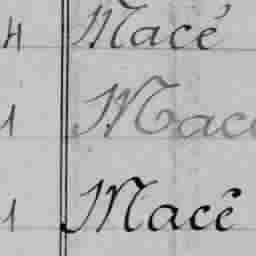 4 Macé
1 Macé
1 Macé